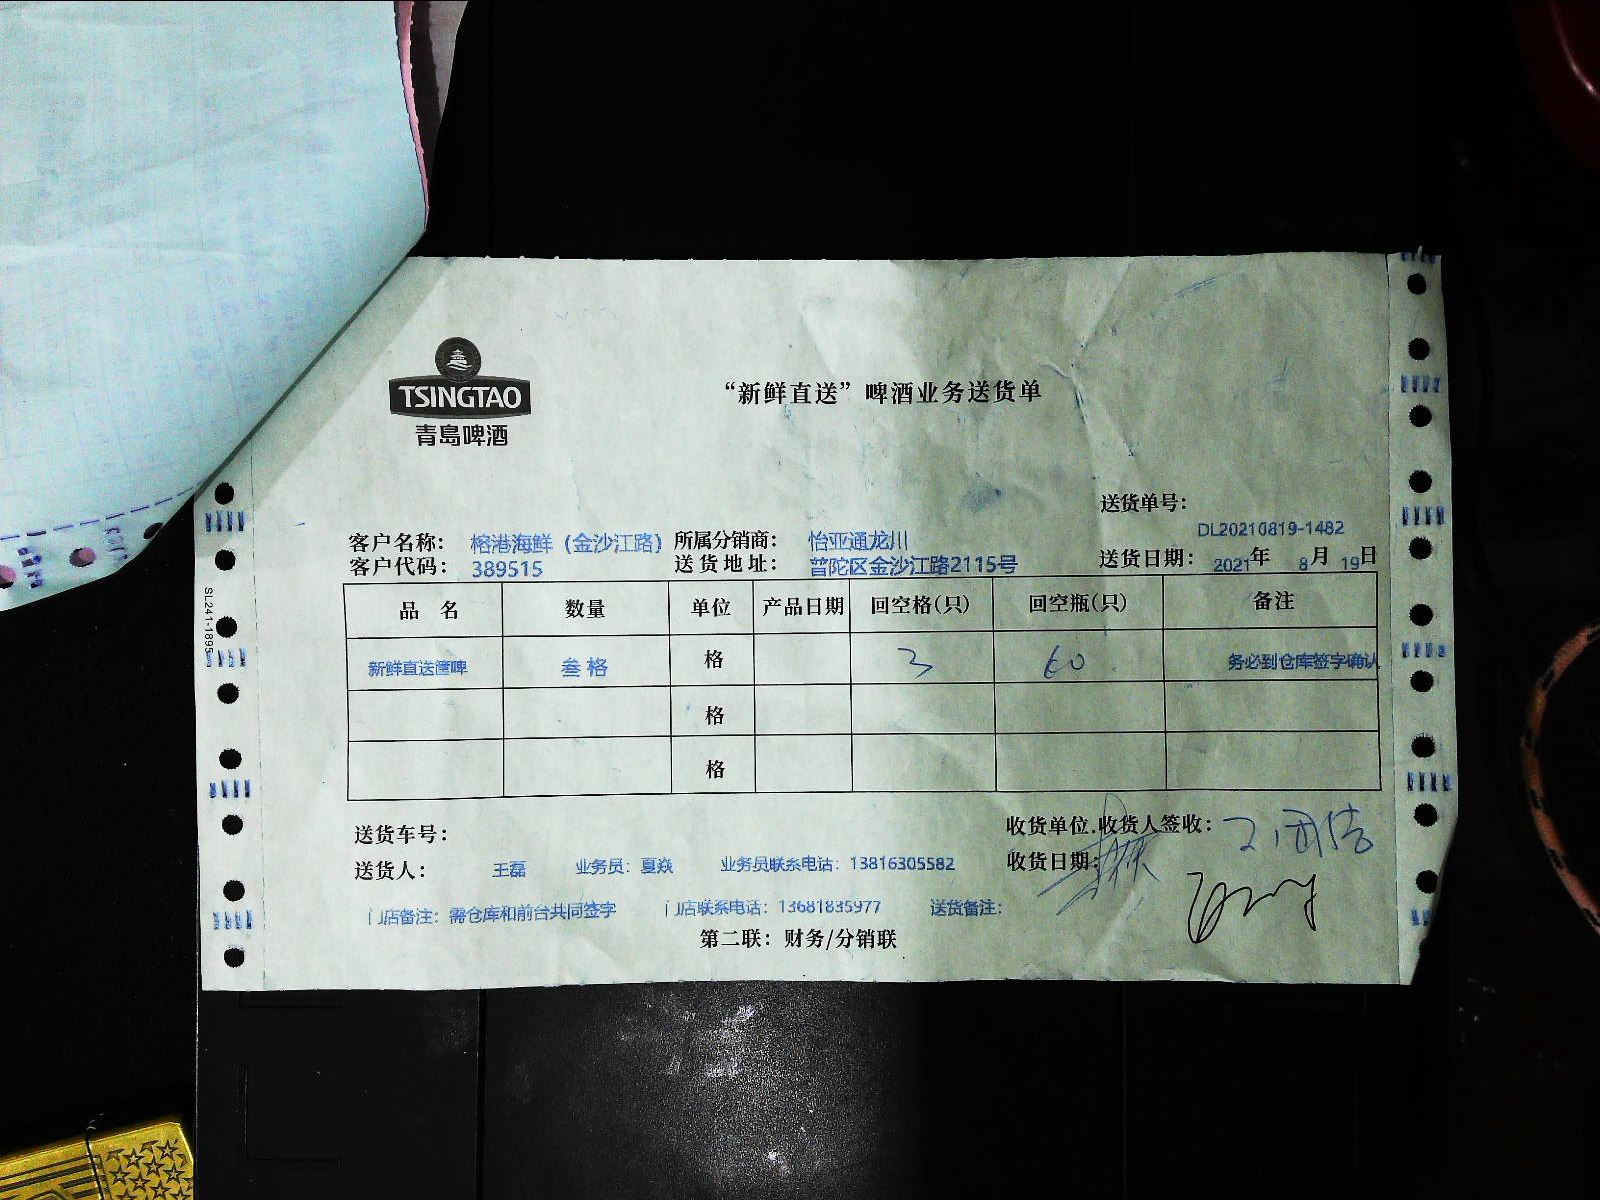 TSINGTAO
青岛啤酒
“新鲜直送”啤酒业务送货单
送货单号：
DL20210819-1482
客户名称： 榕港海鲜（金沙江路） 所属分销商： 怡亚通龙川
客户代码： 389515 送货地址： 普陀区金沙江路2115号 送货日期： 2021年 8月 19日
品 名 数量 单位 产品日期 回空格(只) 回空瓶(只) 备注
新鲜直送筐啤 叁格 格 3 60 务必到仓库签字确认
格
格
送货车号： 收货单位.收货人签收：
送货人： 王磊 业务员：夏焱 业务员联系电话：13816305582 收货日期：
门店备注：需仓库和前台共同签字 门店联系电话：13681835977 送货备注：
第二联：财务/分销联
SL241-1895